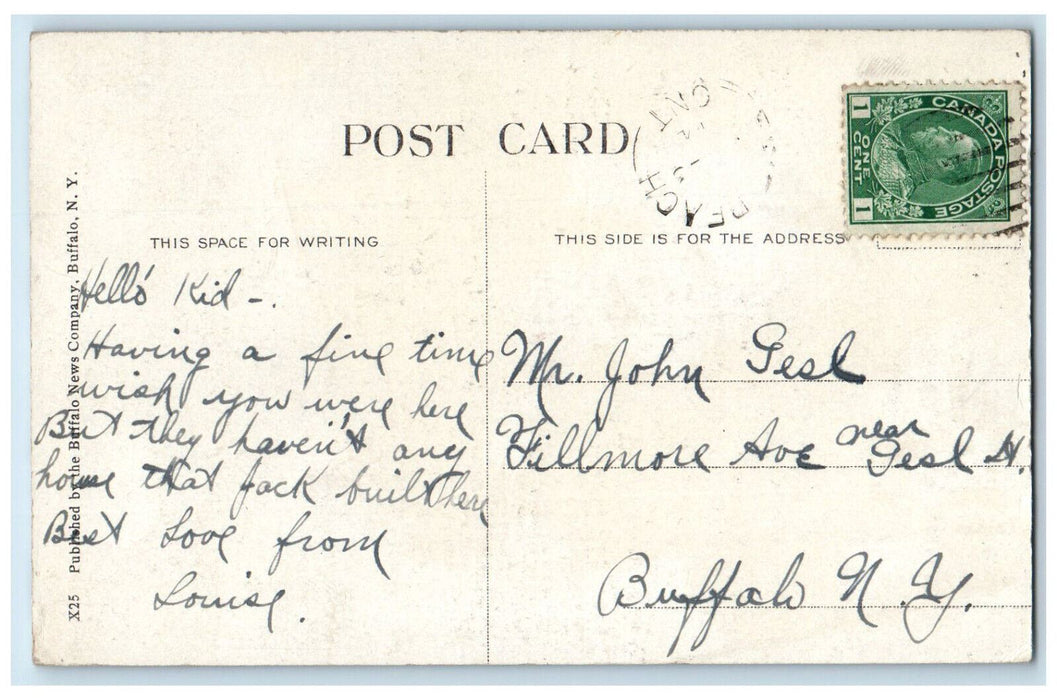 POST CARD
THIS SPACE FOR WRITING
THIS SIDE IS FOR THE ADDRESS
CANADA POSTAGE
ONE CENT
1 1
BEACH ONT
Hello Kid -.
Having a fine time
wish you were here
But they haven't any
house that Jack built here
Best Love from
Louise.
Mr. John Gesl
Fillmore Ave near
Gesl St.
Buffalo N.Y.
X25 Published by the Buffalo News Company, Buffalo, N. Y.